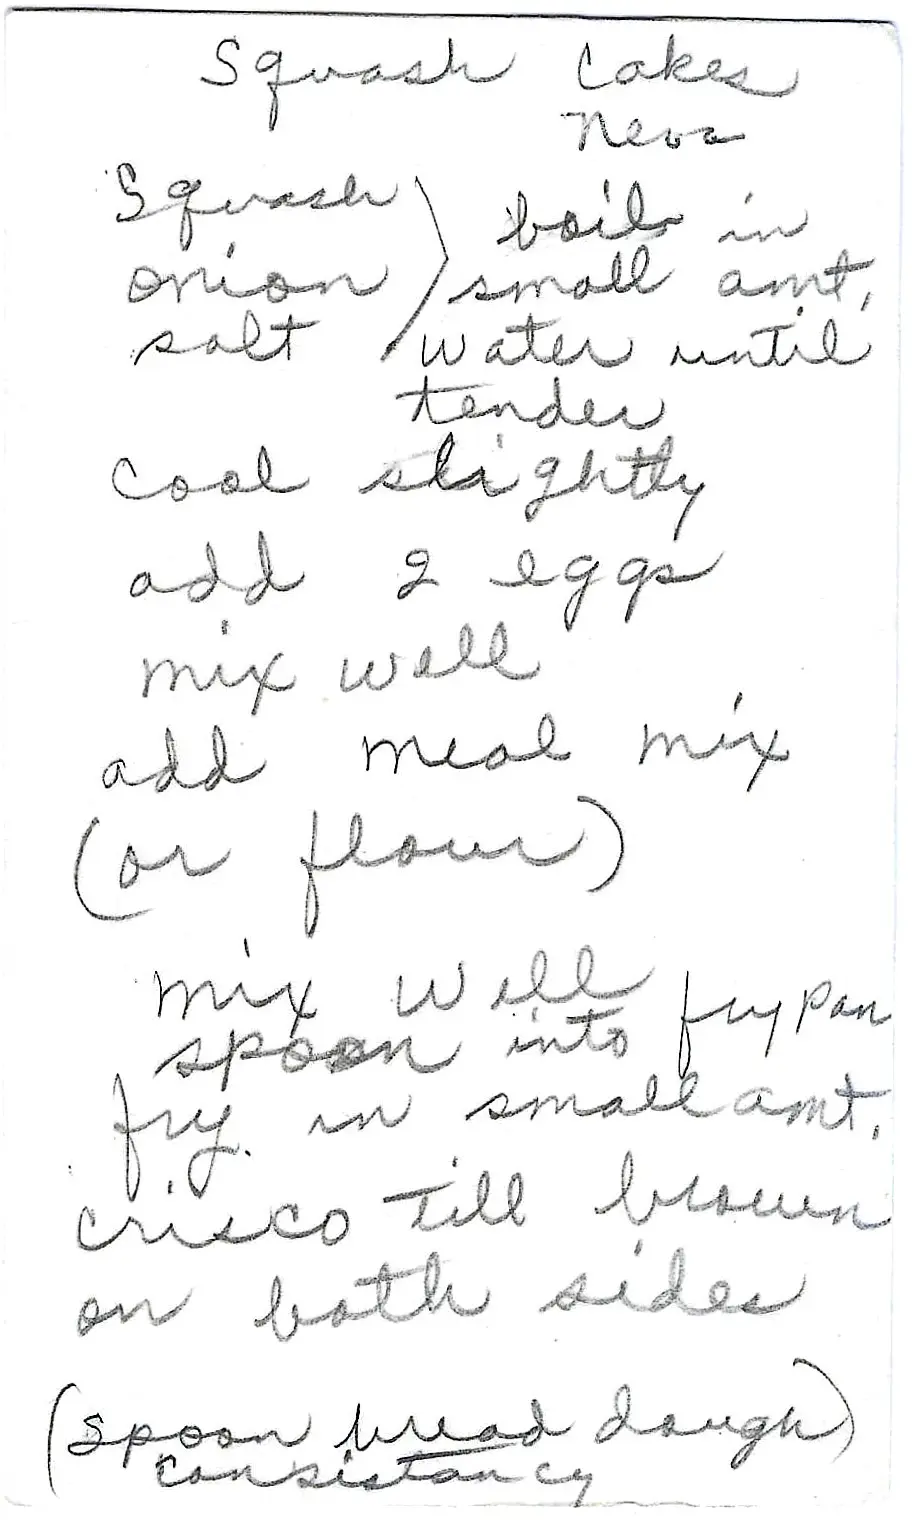 Squash Cakes
Neva
Squash ) boil in
onion ) small amt.
salt ) water until
tender
cool slightly
add 2 eggs
mix well
add meal mix
(or flour)
mix well
spoon into fry pan
fry in small amt.
crisco till brown
on both sides
(spoon bread dough)
consistancy